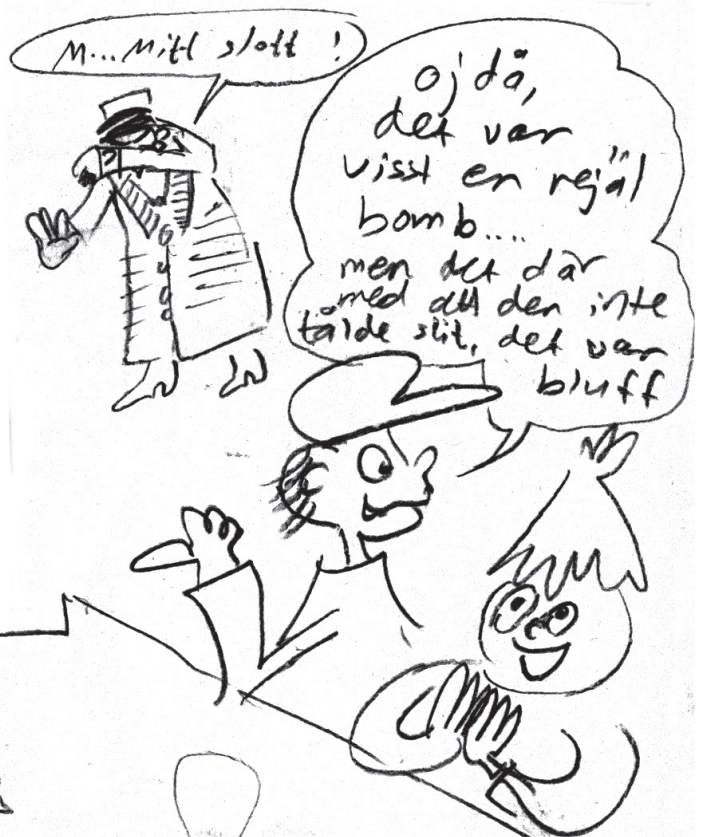 M...Mitt slott !
ojdå,
det var
visst en rejäl
bomb....
men det där
med att den inte
tålde slit, det var
bluff